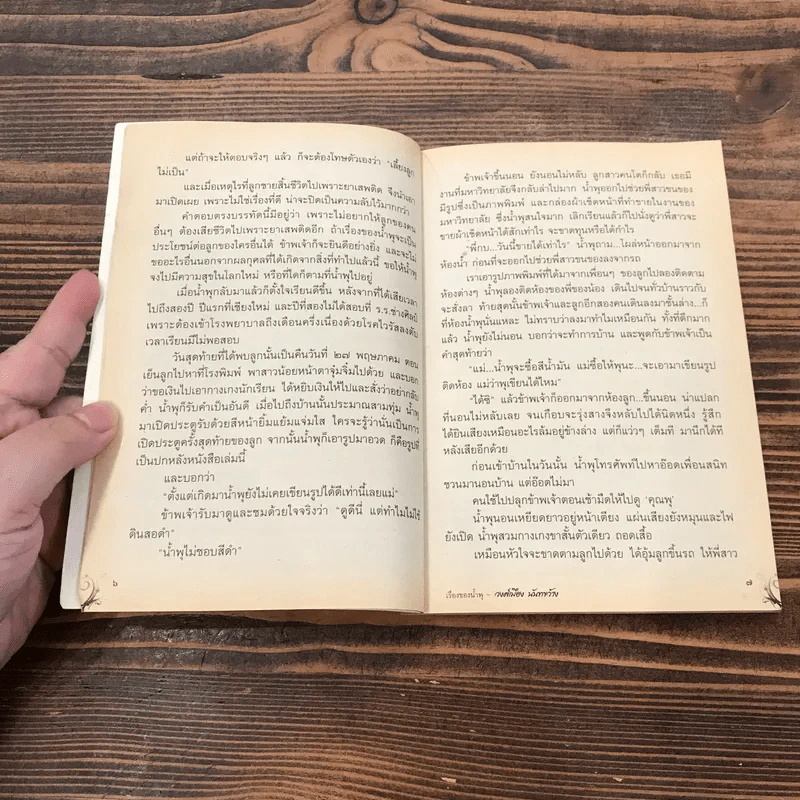 แต่ถ้าจะให้ตอบจริงๆ แล้ว ก็จะต้องโทษตัวเองว่า "เลี้ยงลูก
ไม่เป็น"
และเมื่อเหตุไรที่ลูกชายสิ้นชีวิตไปเพราะยาเสพติด จึงนำเอา
มาเปิดเผย เพราะไม่ใช่เรื่องที่ดี น่าจะปิดเป็นความลับไว้มากกว่า
คำตอบตรงบรรทัดนี้มีอยู่ว่า เพราะไม่อยากให้ลูกของคน
อื่นๆ ต้องเสียชีวิตไปเพราะยาเสพติดอีก ถ้าเรื่องของน้ำพุจะเป็น
ประโยชน์ต่อลูกของใครอื่นได้ ข้าพเจ้าก็จะยินดีอย่างยิ่ง และจะไม่
ขออะไรอื่นนอกจากผลกุศลที่ได้เกิดจากสิ่งที่ทำไปแล้วนี้ ขอให้น้ำพุ
จงไปมีความสุขในโลกใหม่ หรือที่ใดก็ตามที่น้ำพุไปอยู่
เมื่อน้ำพุกลับมาแล้วก็ตั้งใจเรียนดีขึ้น หลังจากที่ได้เสียเวลา
ไปถึงสองปี ปีแรกที่เชียงใหม่ และปีที่สองไม่ได้สอบที่ ร.ร.ช่างศิลป์
เพราะต้องเข้าโรงพยาบาลถึงเดือนครึ่งเนื่องด้วยโรคไวรัสลงตับ
เวลาเรียนมีไม่พอสอบ
วันสุดท้ายที่ได้พบลูกนั้นเป็นคืนวันที่ ๒๗ พฤษภาคม ตอน
เย็นลูกไปหาที่โรงพิมพ์ พาสาวน้อยหน้าตาจุ๋มจิ๋มไปด้วย และบอก
ว่าขอเงินไปเอากางเกงนักเรียน ได้หยิบเงินให้ไปและสั่งว่าอย่ากลับ
ค่ำ น้ำพุก็รับคำเป็นอันดี เมื่อไปถึงบ้านนั้นประมาณสามทุ่ม น้ำพุ
มาเปิดประตูรับด้วยสีหน้ายิ้มแย้มแจ่มใส ใครจะรู้ว่านั่นเป็นการ
เปิดประตูครั้งสุดท้ายของลูก จากนั้นน้ำพุก็เอารูปมาอวด ก็คือรูปที่
เป็นปกหลังหนังสือเล่มนี้
และบอกว่า
"ตั้งแต่เกิดมาน้ำพุยังไม่เคยเขียนรูปได้ดีเท่านี้เลยแม่"
ข้าพเจ้ารับมาดูและชมด้วยใจจริงว่า "ดูดีนี่ แต่ทำไมไม่ใช้
ดินสอดำ"
"น้ำพุไม่ชอบสีดำ"
๖
ข้าพเจ้าขึ้นนอน ยังนอนไม่หลับ ลูกสาวคนโตก็กลับ เธอมี
งานที่มหาวิทยาลัยจึงกลับล่าไปมาก น้ำพุออกไปช่วยพี่สาวขนของ
มีรูปซึ่งเป็นภาพพิมพ์ และกล่องผ้าเช็ดหน้าที่ทำขายในงานของ
มหาวิทยาลัย ซึ่งน้ำพุสนใจมาก เลิกเรียนแล้วก็ไปนั่งดูว่าพี่สาวจะ
ขายผ้าเช็ดหน้าได้สักเท่าไร จะขาดทุนหรือได้กำไร
"พี่กบ...วันนี้ขายได้เท่าไร" น้ำพุถาม...โผล่หน้าออกมาจาก
ห้องน้ำ ก่อนที่จะออกไปช่วยพี่สาวขนของลงจากรถ
เราเอารูปภาพพิมพ์ที่ได้มาจากเพื่อนๆ ของลูกไปลองติดตาม
ห้องต่างๆ น้ำพุลองติดห้องของพี่ของน้อง เดินไปจนทั่วบ้านราวกับ
จะสั่งลา ท้ายสุดนั้นข้าพเจ้าและลูกอีกสองคนเดินลงมาชั้นล่าง...ก็
ที่ห้องน้ำพุนั่นแหละ ไม่ทราบว่าลงมาทำไมเหมือนกัน ทั้งที่ดึกมาก
แล้ว น้ำพุยังไม่นอน บอกว่าจะทำการบ้าน และพูดกับข้าพเจ้าเป็น
คำสุดท้ายว่า
"แม่...น้ำพุจะซื้อสีน้ำมัน แม่ซื้อให้พุนะ...จะเอามาเขียนรูป
ติดห้อง แม่ว่าพุเขียนได้ไหม"
"ได้ซิ" แล้วข้าพเจ้าก็ออกมาจากห้องลูก...ขึ้นนอน น่าแปลก
ที่นอนไม่หลับเลย จนเกือบจะรุ่งสางจึงหลับไปได้นิดหนึ่ง รู้สึก
ได้ยินเสียงเหมือนอะไรล้มอยู่ข้างล่าง แต่ก็แว่วๆ เต็มที มานึกได้ที
หลังเสียอีกด้วย
ก่อนเข้าบ้านในวันนั้น น้ำพุโทรศัพท์ไปหาอ๊อดเพื่อนสนิท
ชวนมานอนบ้าน แต่อ๊อดไม่มา
คนใช้ไปปลุกข้าพเจ้าตอนเช้ามืดให้ไปดู 'คุณพุ'
น้ำพุนอนเหยียดยาวอยู่หน้าเตียง แผ่นเสียงยังหมุนและไฟ
ยังเปิด น้ำพุสวมกางเกงขาสั้นตัวเดียว ถอดเสื้อ
เหมือนหัวใจจะขาดตามลูกไปด้วย ได้อุ้มลูกขึ้นรถ ให้พี่สาว
เรื่องของน้ำพุ - วงศ์เมือง นันทขว้าง
๗